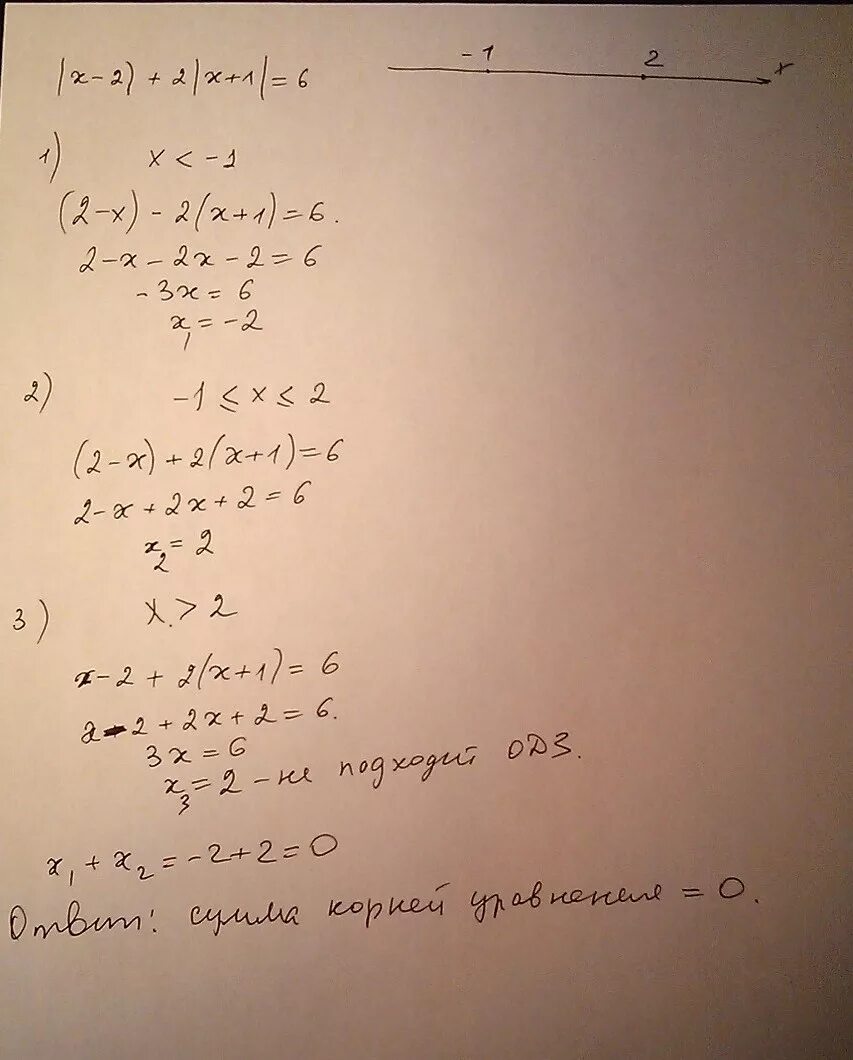 |x-2) + 2|x+1| = 6
-1 2 x
1) x < -1
(2-x) - 2(x+1) = 6.
2-x-2x-2=6
-3x = 6
x₁ = -2
2) -1 ≤ x ≤ 2
(2-x)+2(x+1)=6
2-x+2x+2=6
x₂ = 2
3) x > 2
x-2 + 2(x+1) = 6
x-2+2x+2=6.
3x=6
x₃=2 - не подходит ОДЗ.
x₁ + x₂ = -2+2=0
Ответ: сумма корней уравнения = 0.